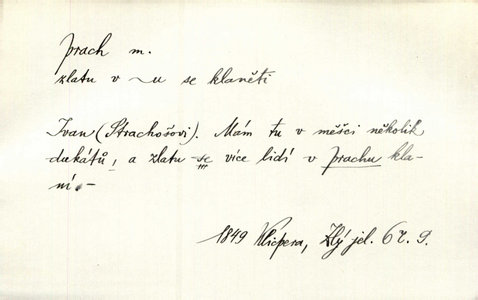 prach m.
zlatu v ~u se klaněti
Ivan (Strachošovi). Mám tu v měšci několik
dukátů, a zlatu se více lidí v prachu kla-
ní. -
1849 Klicpera, Zlý jel. 67. 9.